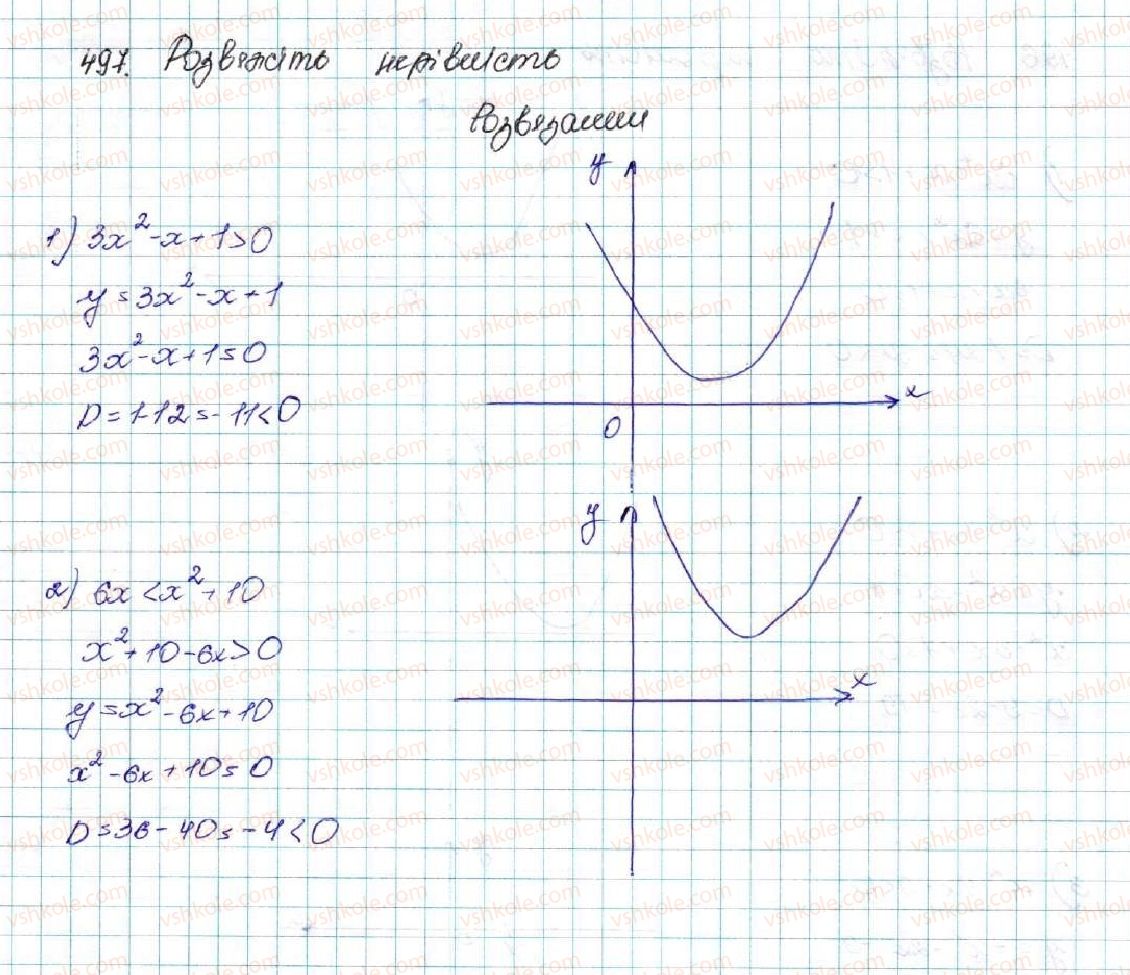 497. Розвяжіть нерівність
Розвязання
1) 3x²-x+1>0
y=3x²-x+1
3x²-x+1=0
D=1-12=-11<0
y
x
0
2) 6x<x²+10
x²+10-6x>0
y=x²-6x+10
x²-6x+10=0
D=36-40=-4<0
y
x
vshkole.com